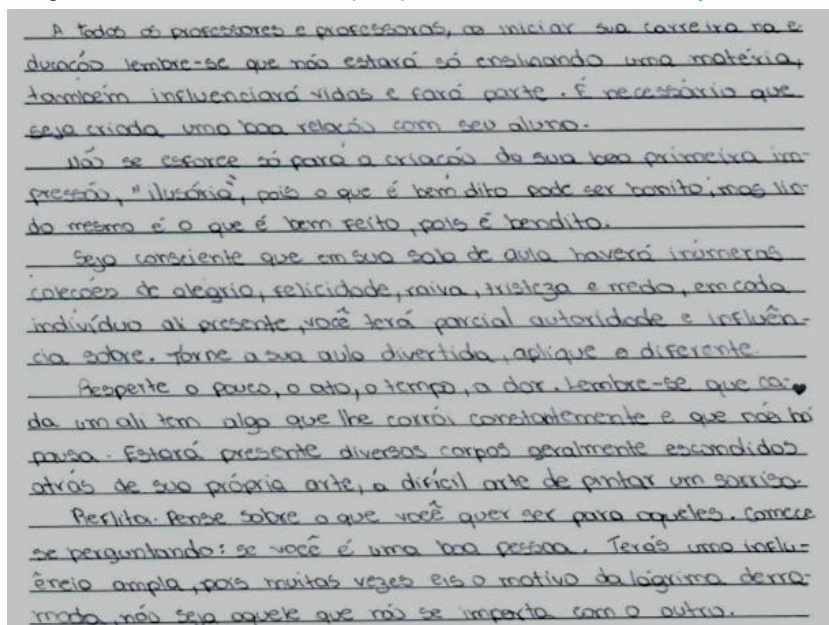 A todos os professores e professoras, ao iniciar sua carreira na e-
ducação lembre-se que não estará só ensinando uma matéria,
também influenciará vidas e fará parte. É necessário que
seja criada uma boa relação com seu aluno.
Não se esforce só para a criação da sua boa primeira im-
pressão, "ilusória", pois o que é bem dito pode ser bonito, mas lin-
do mesmo é o que é bem feito, pois é bendito.
Seja consciente que em sua sala de aula haverá inúmeras
coleções de alegria, felicidade, raiva, tristeza e medo, em cada
indivíduo ali presente, você terá parcial autoridade e influên-
cia sobre. Torne a sua aula divertida, aplique o diferente.
Respeite o pouco, o ato, o tempo, a dor. Lembre-se que ca-
da um ali tem algo que lhe corrói constantemente e que não há
pausa. Estará presente diversos corpos geralmente escondidos
atrás de sua própria arte, a difícil arte de pintar um sorriso.
Reflita. Pense sobre o que você quer ser para aqueles. Comece
se perguntando: se você é uma boa pessoa. Terás uma influ-
ência ampla, pois muitas vezes eis o motivo da lágrima derra-
mada, não seja aquele que não se importa com o outro.